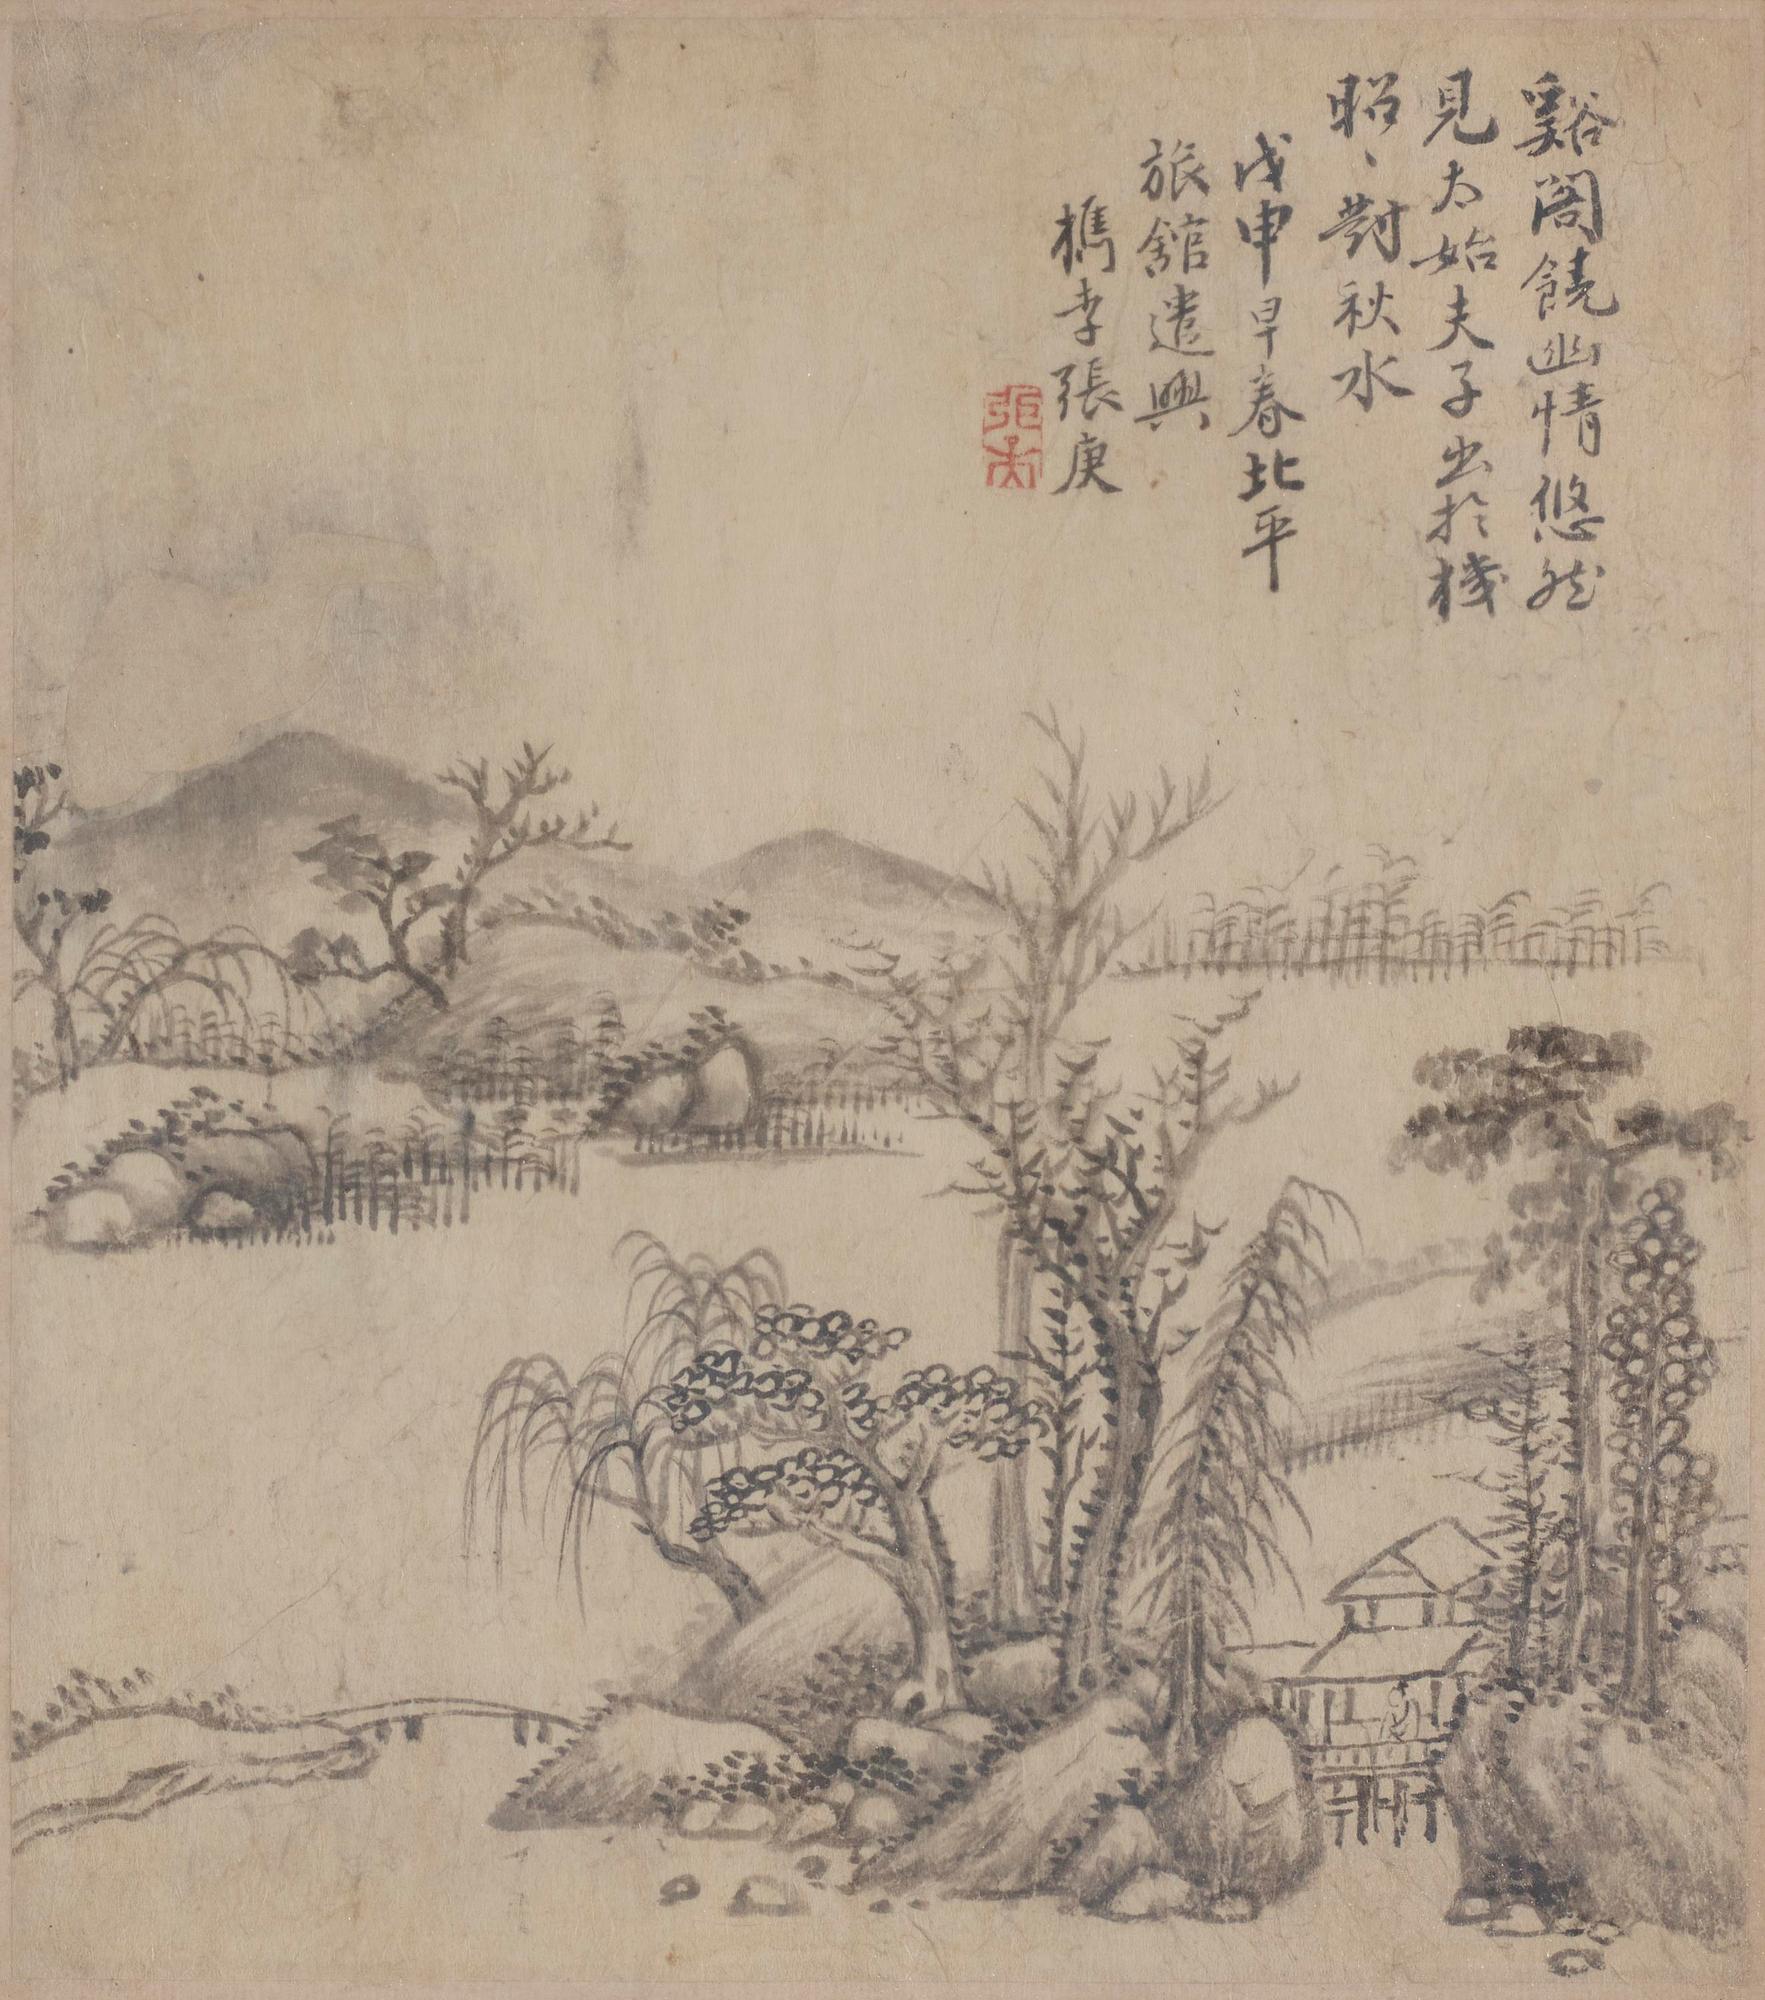 谿閣饒幽情悠然
見太始夫子出於棧
昭〻對秋水
戊申早春北平
旅舘遣興
檇李張庚
張庚